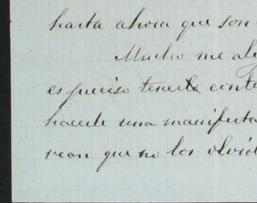 hasta ahora que son
Mucho me al
es preciso tenerle conte
hacerle una manifesta
vean que no los olvid